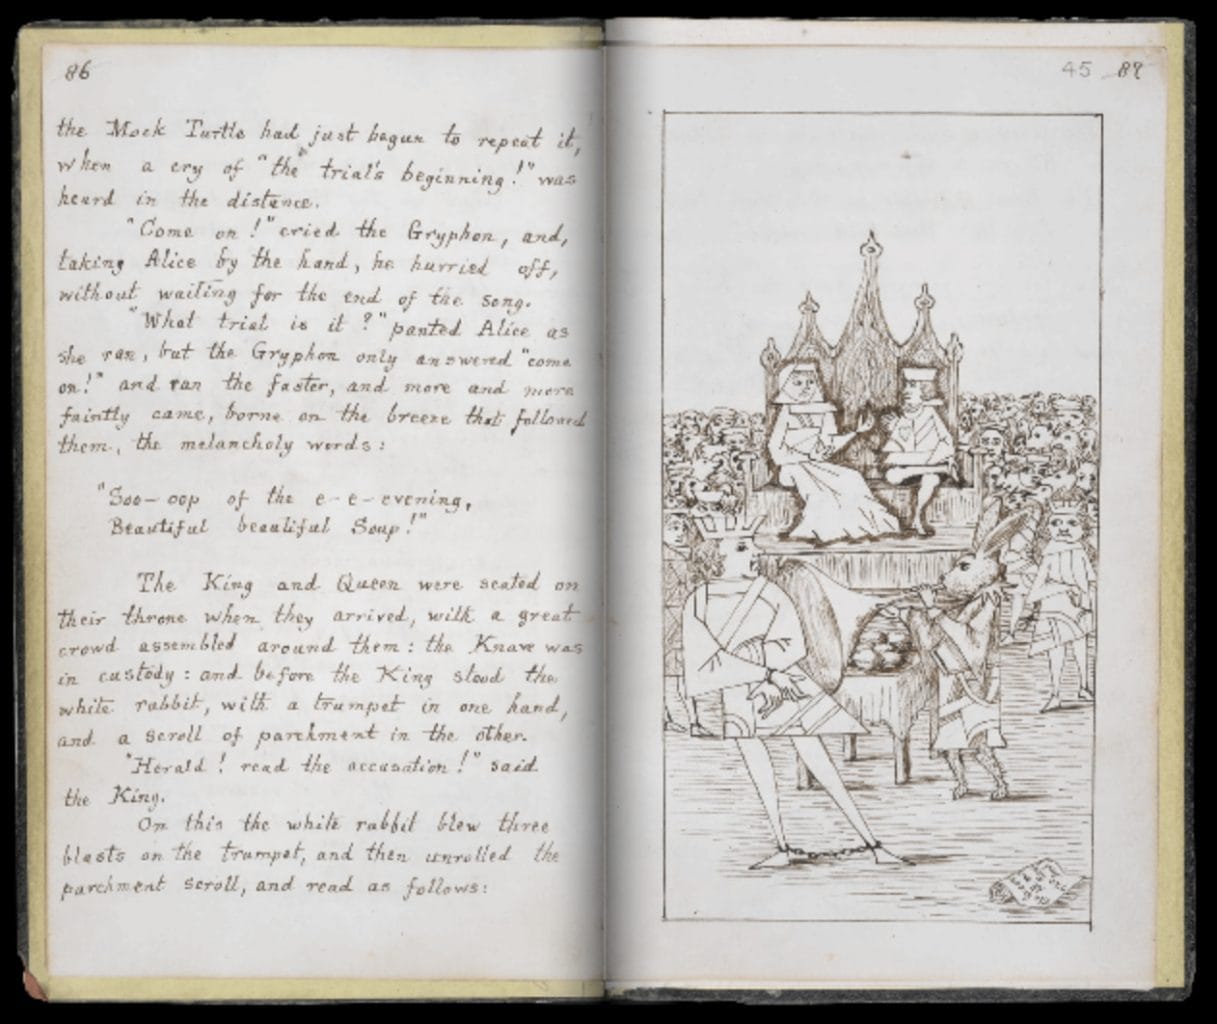 86
the Mock Turtle had just begun to repeat it,
when a cry of "the trial's beginning!" was
heard in the distance.
"Come on!" cried the Gryphon, and,
taking Alice by the hand, he hurried off,
without waiting for the end of the song.
"What trial is it?" panted Alice as
she ran, but the Gryphon only answered "come
on!" and ran the faster, and more and more
faintly came, borne on the breeze that followed
them, the melancholy words:
"Soo-oop of the e-e-evening,
Beautiful beautiful Soup!"
The King and Queen were seated on
their throne when they arrived, with a great
crowd assembled around them: the Knave was
in custody: and before the King stood the
white rabbit, with a trumpet in one hand,
and a scroll of parchment in the other.
"Herald! read the accusation!" said
the King.
On this the white rabbit blew three
blasts on the trumpet, and then unrolled the
parchment scroll, and read as follows:
45 87